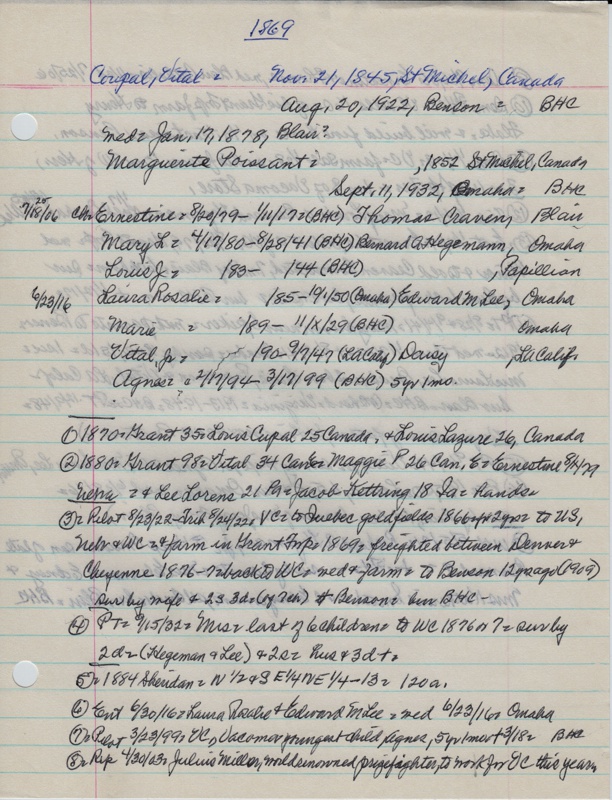 1869
Coupal, Vital = Nov. 21, 1845, St Michel, Canada
Aug. 20, 1922, Benson = BHC
med= Jan, 17, 1878, Blair?
Marguerite Poissant = , 1852 St Michel, Canada
Sept. 11, 1932, Omaha = BHC
7/18/06 Ch= Ernestine = 8/20/79 - 1/11/17=(BHC) Thomas Craven, Blair
Mary L = 4/17/80-8/28/41 (BHC) Bernard A Hegemann, Omaha
Louis J = 183- 144 (BHC) , Papillion
6/23/16 Laura Rosalie = 185-10/1/50 (Omaha) Edward M Lee, Omaha
Marie = 189- 11/X/29 (BHC) Omaha
Vital, Jr = 190-9/7/47 (LACaly) Daisy , LA Calif.
Agnes = 2/17/94-3/17/99 (BHC) 5yr 1mo.
① 1870= Grant 35= Louis Cupal 25 Canada, & Louis Lazure 26, Canada
② 1880= Grant 98= Vital 34 Can= Maggie P 26 Can, E= Ernestine 8/4/79
Nebra = & Lee Lorens 21 Pa= Jacob Kettring 18 Ia= hands=
③= Pilot 8/23/22-Trib 8/24/22= VC= to Quebec goldfields 1866= 2yrs= to US,
Nebr & WC= & farm in Grant Twp= 1869= freighted between Denver &
Cheyenne 1876-7= back to WC= med & farm= to Benson 12 yr ago (1909)
sur by wife & 2s 3d= (of 7ch) Benson= bur BHC-
④ PT= 9/15/32= Mrs= last of 6 children= to WC 1876 or 7= sur by
2d= (Hegeman & Lee) & 2s= hus & 3d +=
⑤= 1884 Sheridan= N 1/2 & SE 1/4 NE 1/4-13= 120a.
⑥ Ent 6/30/16= Laura Rosalie & Edward M Lee= med 6/23/16= Omaha
⑦= Pilot 3/23/99= VC, Vacoma= youngest child, Agnes, 5yr 1mo + 3/18= BHC
⑧= Rep 4/30/03= Julius Miller, world renowned prizefighter, to work for VC this year=